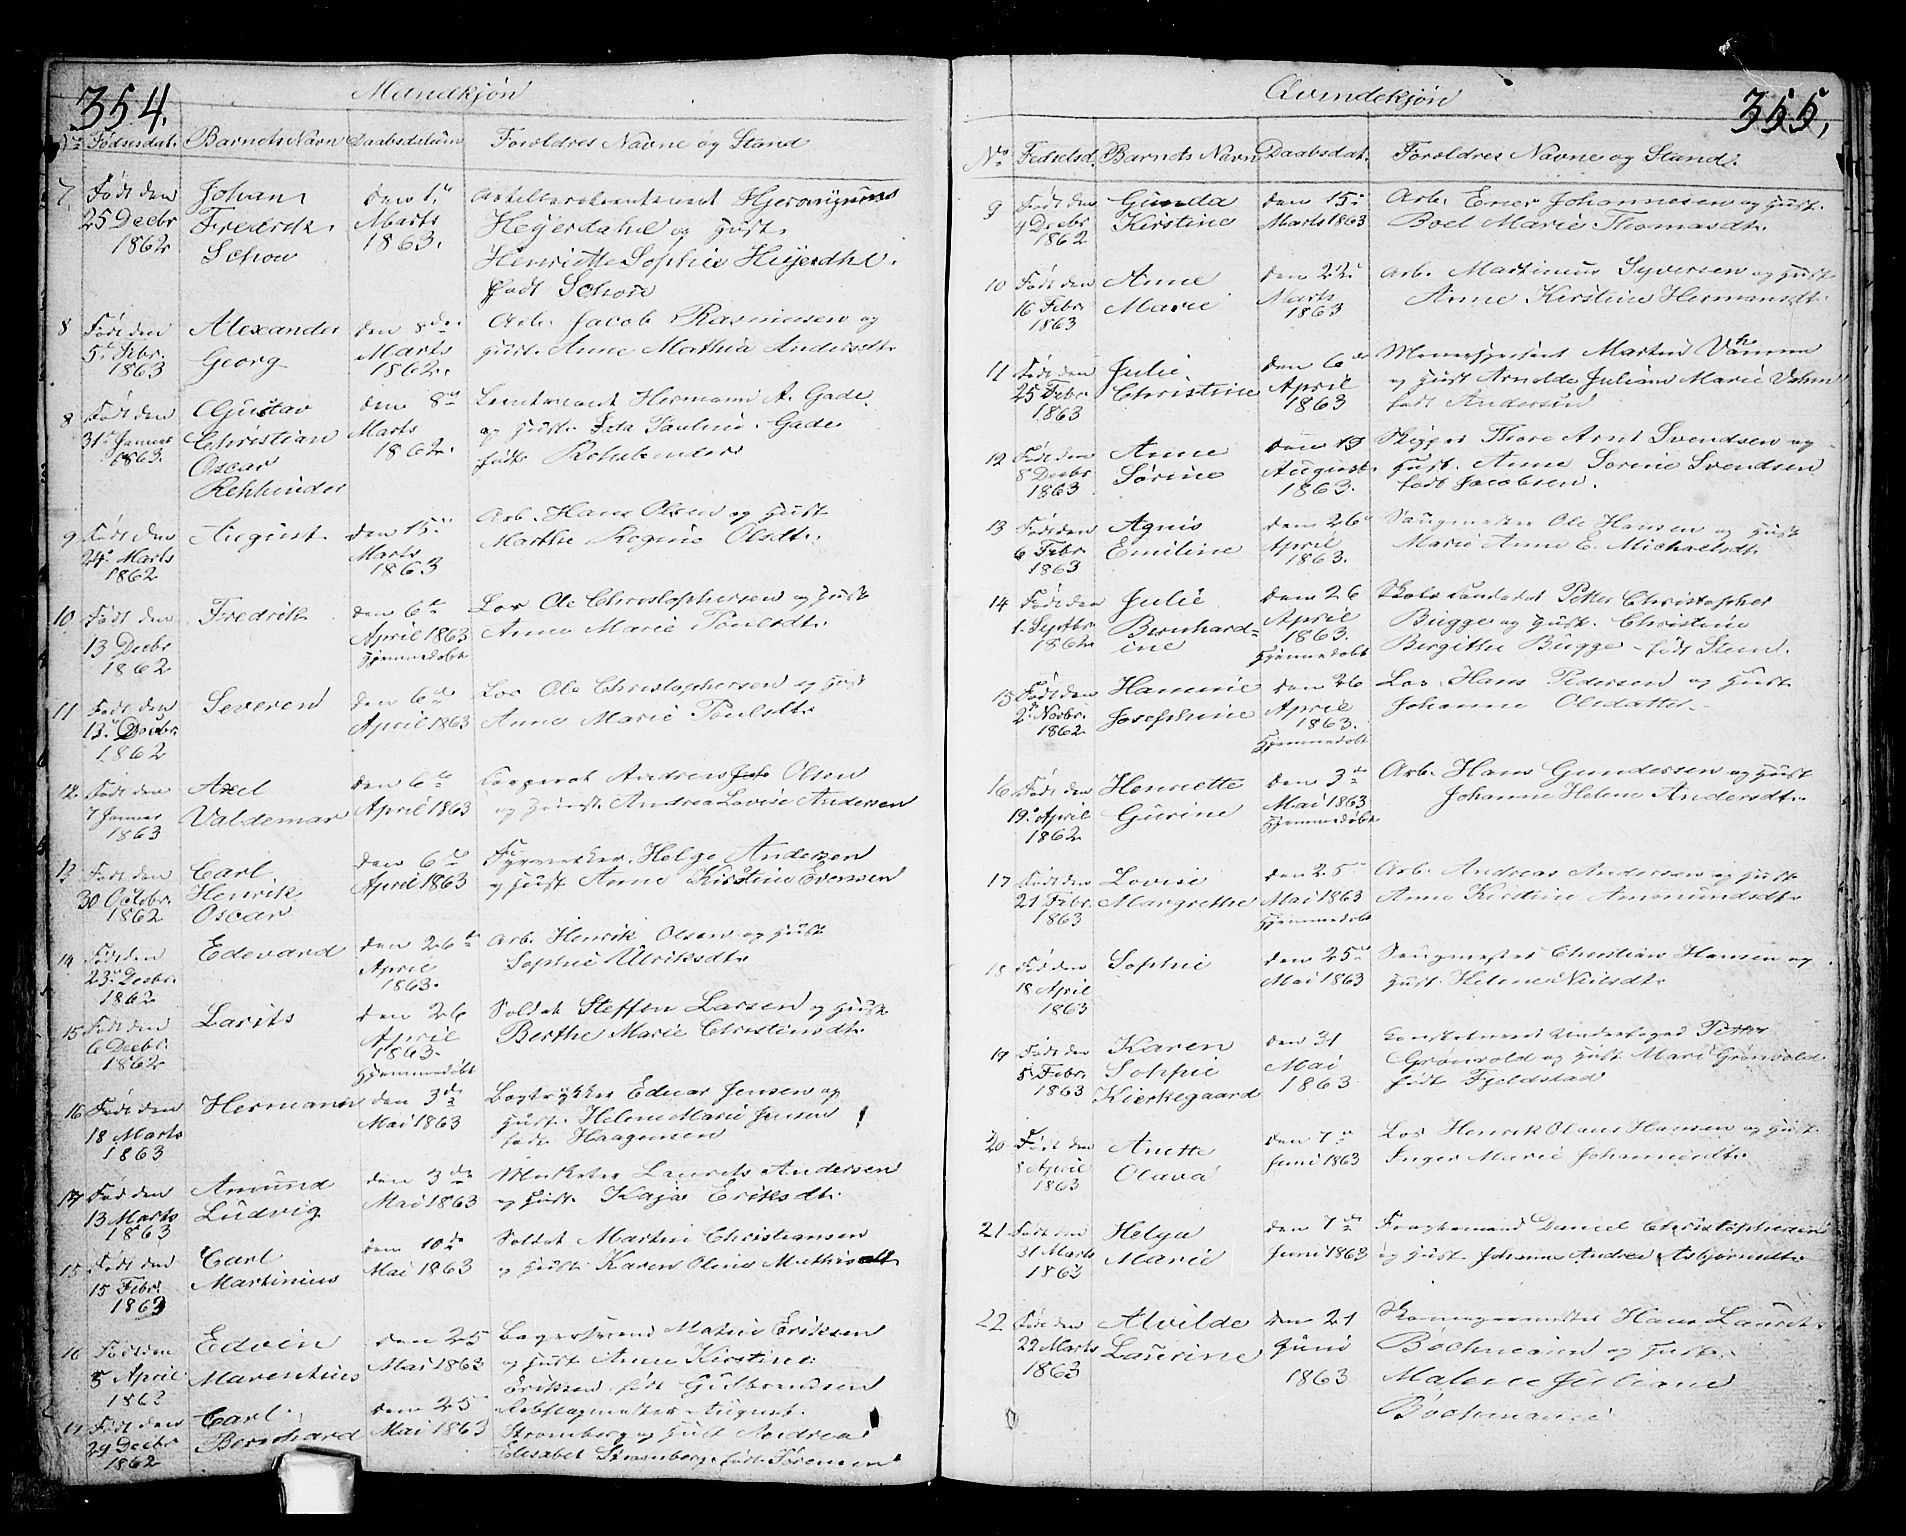 354.
Mandkjøn
No Fødselsdat. Barnets Navn Daabsdatum Forældres Navne og Stand
7. Født den 25 Decbr 1862
Johan Fredrik Schou
den 1te Marts 1863.
Heyerdahl og Hust.
Henriette Sophie Heyerdhl.
født Schou
8 Født den 5te Febr. 1863
Alexander Georg
den 8de Marts 1862.
Arb. Jacob Rasmusen og
Hust. Anne Mathia Andersdt.
8 Født den 31te Januar 1863.
Gustav Christian Oscar Rehbinder
den 8de Marts 1862.
Leutenant Hermann A. Gade
og Hust. Ida Pauline Gade
født Rehbinder
9 Født den 24de Marts 1862
August
den 15de Marts 1863
Arb. Hans Olsen og Hust
Marthe Regine Olsdt.
10 Født den 13 Decbr 1862
Fredrik
den 6te April 1863 Hjemmedøbt
Los Ole Christophersen og Hust
Anne Marie Poulsdt.
11 Født den 13de Decbr. 1862
Severen
den 6te April 1863
Los Ole Christophersen og Hust
Anne Marie Poulsdt.
12 Født den 7 Januar 1863
Axel Valdemar
den 6te April 1863
Andreas Olsen
og Hust. Andrea Lovise Andersen
13 Født den 30 Octobr. 1862
Carl Henrik Oscar
den 6te April 1863
Fyrværker Helge Andersen
og Hust Anne Kirstine Evensen
14 Født den 23de Decbr. 1862
Edevard
den 26de April 1863.
Arb. Henrik Olsen og Hust
Sophie Ulriksdt.
15 Født den 6 Decbr. 1862
Larits
den 26 April 1863. Hjemmedøbt
Soldat Steffen Larsen og Hust
Berthe Marie Christensdt.
16 Født den 18 Marts 1863
Hermann
den 3de Mai 1863
Bogtrykker Eduar Jensen og
Hust. Helene Marie Jensen
født Haagensen
17 Født den 13 Marts 1863
Amund Ludvig
den 3de Mai 1863
Musketer Laurits Andersen
og Hust. Kaja Eriksdt.
15 Født den 15 Febr. 1863
Carl Martinius
den 10de Mai 1863
Soldat Martin Christiansen
og Hust. Karen Oline Mathisdt
16 Født den 5 April 1863
Edvin Marentius
den 25 Mai 1863
Bagersvend Eriksen
og Hust Anne Kirstine
Eriksen født Gulbrandsen
17 Født den 29 Decbr 1862
Carl Bernhard
den 25 Mai 1863
Rebslagmester August
Stromberg og Hust Andrea
Elisabet Stromberg født Sørensen
355,
Qvindekjøn
No Fødselsd. Barnets Navn Daabsdat. Forældres Navne og Stand.
9 Født den 9 Decbr 1862
Gunda Kirstine
den 15de Marts 1863
Arb. Ener Johannesen og Hust.
Boel Marie Thomasdt.
10 Født den 16 Febr 1863
Anne Marie
den 22de Marts 1863
Arb. Martinius Syversen og Hust
Anne Kirstine Hermansdt.
11 Født den 25 Febr 1863
Julie Christine
den 6te April 1863
og Hust Arnolde Juliane Marie
født Andersen
12 Født den 8 Decbr 1863
Anne Sørine
den 19 August 1863.
Skipper Thore Arnt Svendsen og
Hust. Anne Sorine Svendsen
født Jacobsen.
13 Født den 6 Febr. 1863
Agnis Emiline
den 26de April 1863.
Saugmester Ole Hansen og Hust
Marie Anne E. Michaelsdt.
14 Født den 1. Septbr. 1862
Julie Bernhard-ine
den 26 April 1863. Hjemmedøbt
Petter Christopher
Bugge og Hust. Christine
Birgithe Bugge født Steen.
15 Født den 2d Novbr. 1862
Hammie Josephine
den 26 April 1863. Hjemmedøbt
Los. Hans Pedersen og Hust
Johanne Olsdatter
16 Født den 19de April 1862
Henriette Gurine
den 3de Mai 1863 Hjemmedøbt
Arb. Hans Gundersen og Hust
Johanne Helene Andersdt.
17 Født den 21 Febr. 1863
Lovise Margrethe
den 25de Mai 1863 Hjemmedøbt
Arb. Andreas Andersen og Hust
Anne Kirstine Ammundsdt.
18 Født den 18 April 1863
Sophie
den 25de Mai 1863
Saugmester Christian Hansen og
Hust Helene Neilsdt.
19 Født den 5 Febr. 1863
Karen Sophie Kierkegaard
den 31 Mai 1863
Constitueret Underfoged Petter
Grønvold og Hust Mari Grønvold
født Fjeldstad
20 Født den 8 April 1863
Anette Olava
den 7de Juni 1863
Los Henrik Olaus Hansen og Hust.
Inger Marie Johannesdt.
21 Født den 31 Marts 1863
Helga Marie
den 7de Juni 1863
Fragtemand Daniel Christophersen
og Hust Johanne Andrea Asbjørnsdt.
22 Født den 22 Marts 1863
Alvilde Laurine
den 21 Juni 1863
Hans Laurits
og Hust.
Malene Juliane